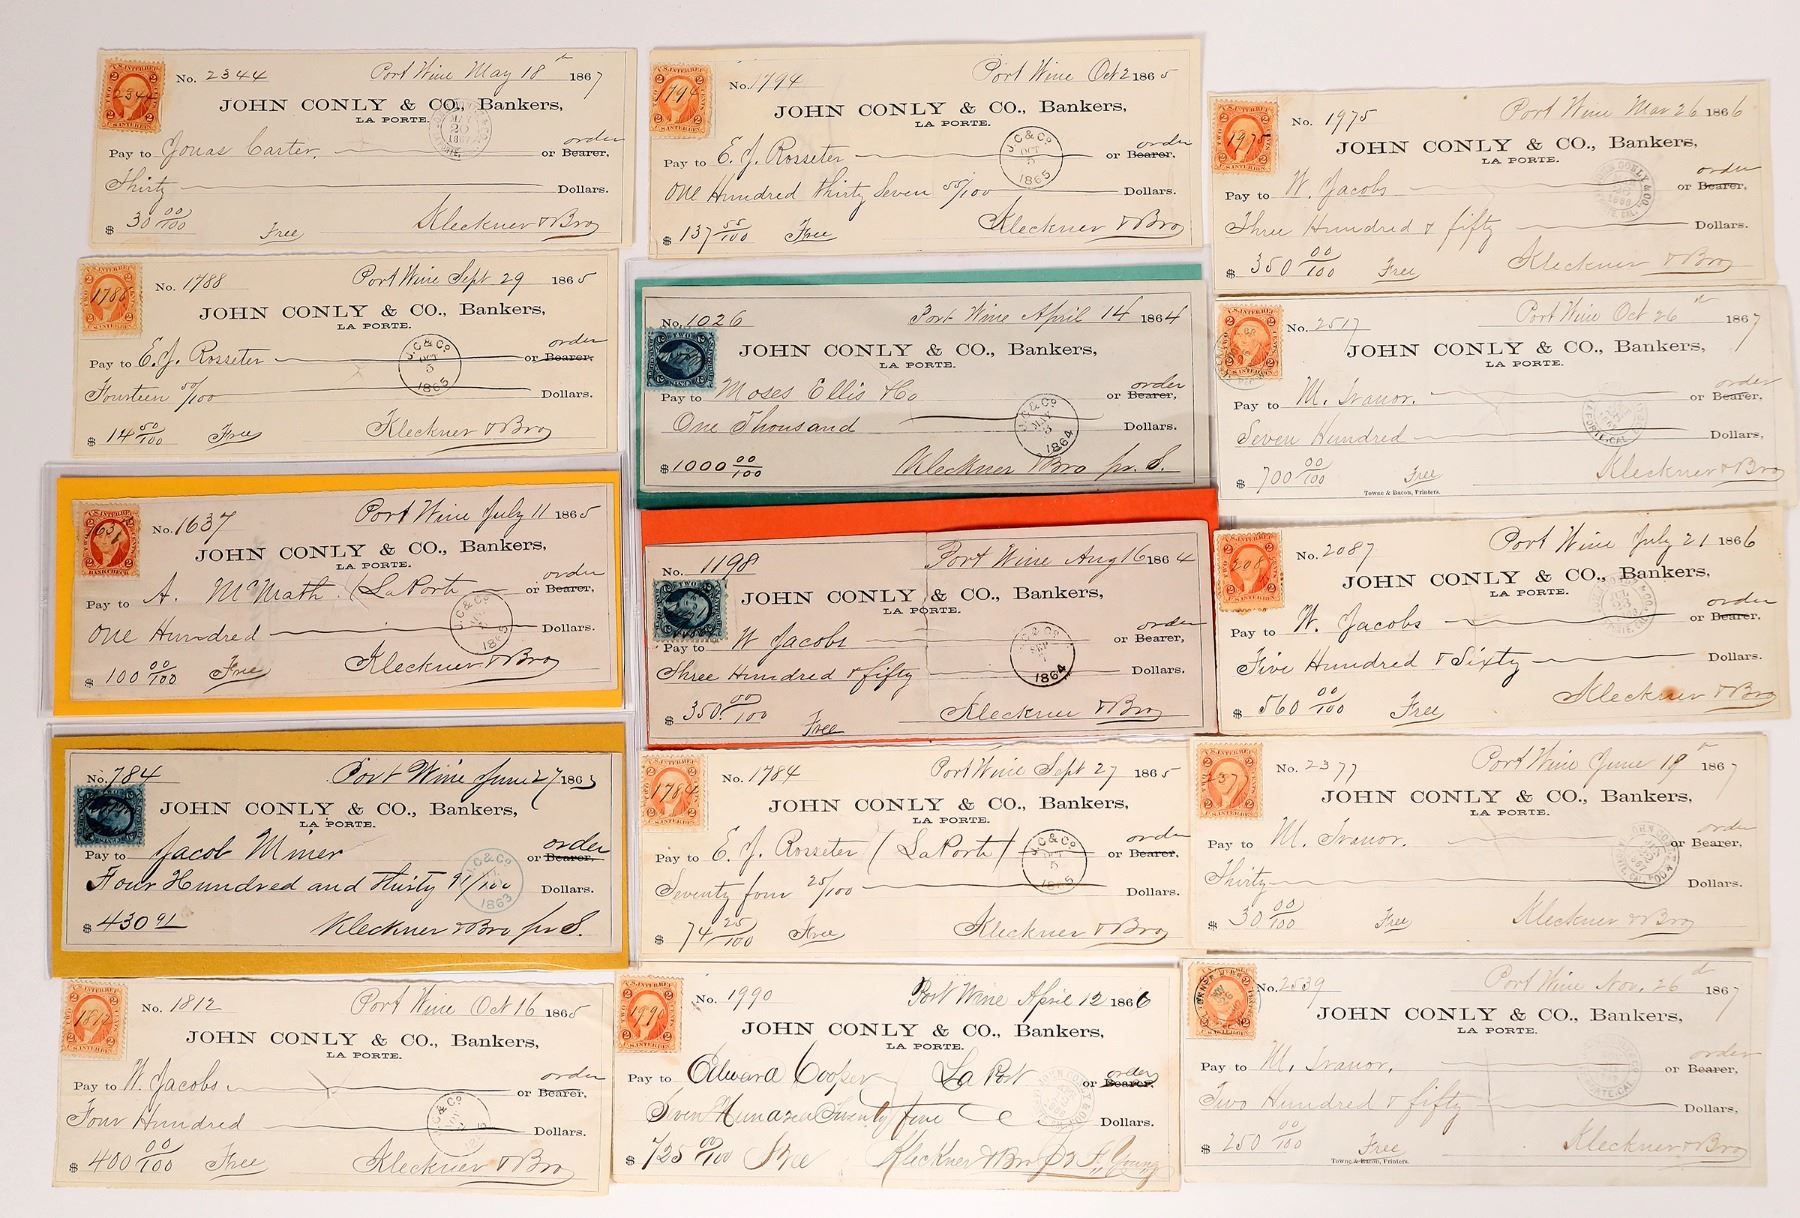 No. 2344 Port Wine May 18th 1867
JOHN CONLY & CO., Bankers,
LA PORTE.
Pay to Jonas Carter. or Bearer, order
Thirty Dollars.
$ 30 00/100 Free Kleckner & Bro
No. 1788 Port Wine Sept 29 1865
JOHN CONLY & CO., Bankers,
LA PORTE.
Pay to E. J. Rosseter or Bearer, order
Fourteen 50/100 Dollars.
$ 14 50/100 Free Kleckner & Bro
J. C & Co OCT 5 1865
No. 1637 Port Wine July 11 1865
JOHN CONLY & CO., Bankers,
LA PORTE.
Pay to A. McMath. (La Porte or Bearer, order
One Hundred Dollars.
$ 100 00/100 Free Kleckner & Bro
No. 784 Port Wine June 27 1863
JOHN CONLY & CO., Bankers,
LA PORTE.
Pay to Jacob Miner or Bearer, order
Four Hundred and thirty 91/100 Dollars.
$ 430 91 Kleckner & Bro pr S.
No. 1812 Port Wine Oct 16 1865
JOHN CONLY & CO., Bankers,
LA PORTE.
Pay to W. Jacobs or Bearer, order
Four Hundred Dollars.
$ 400 00/100 Free Kleckner & Bro
No. 1794 Port Wine Oct 2 1865
JOHN CONLY & CO., Bankers,
LA PORTE.
Pay to E. J. Rosseter or Bearer, order
One Hundred thirty Seven 55/100 Dollars.
$ 137 55/100 Free Kleckner & Bro
J. C & Co OCT 5 1865
No. 1026 Port Wine April 14 1864
JOHN CONLY & CO., Bankers,
LA PORTE.
Pay to Moses Ellis & Co or Bearer, order
One Thousand Dollars.
$ 1000 00/100 Kleckner & Bro pr. S.
J. C & Co MAY 5 1864
No. 1198 Port Wine Aug 16 1864
JOHN CONLY & CO., Bankers,
LA PORTE.
Pay to W Jacobs or Bearer, order
Three Hundred & fifty Dollars.
$ 350. 00/100 Free Kleckner & Bro
No. 1784 Port Wine Sept 27 1865
JOHN CONLY & CO., Bankers,
LA PORTE.
Pay to E. J. Rosseter (La Porte) or Bearer, order
Seventy four 25/100 Dollars.
$ 74 25/100 Free Kleckner & Bro
J. C & Co OCT 5 1865
No. 1990 Port Wine April 12 1866
JOHN CONLY & CO., Bankers,
LA PORTE.
Pay to Edward Cooper La Port or Bearer, order
Seven Hundred Twenty five Dollars.
$ 725 00/100 Free Kleckner & Bro
No. 1975 Port Wine Mar 26 1866
JOHN CONLY & CO., Bankers,
LA PORTE.
Pay to W. Jacobs or Bearer, order
Three Hundred & fifty Dollars.
$ 350 00/100 Free Kleckner & Bro
No. 2517 Port Wine Oct 26th 1867
JOHN CONLY & CO., Bankers,
LA PORTE.
Pay to M. Ivanor. or Bearer, order
Seven Hundred Dollars,
$ 700 00/100 Free Kleckner & Bro
Towne & Bacon, Printers.
No. 2087 Port Wine July 21 1866
JOHN CONLY & CO., Bankers,
LA PORTE.
Pay to W. Jacobs or Bearer, order
Five Hundred & Sixty Dollars.
$ 560 00/100 Free Kleckner & Bro
No. 2377 Port Wine June 19th 1867
JOHN CONLY & CO., Bankers,
LA PORTE.
Pay to M. Ivanor. or Bearer, order
Thirty Dollars.
$ 30 00/100 Free Kleckner & Bro
No. 2539 Port Wine Nov. 26d 1867
JOHN CONLY & CO., Bankers,
LA PORTE.
Pay to M. Ivanor. or Bearer, order
Two Hundred & fifty Dollars,
$ 250 00/100 Free Kleckner & Bro
Towne & Bacon, Printers.